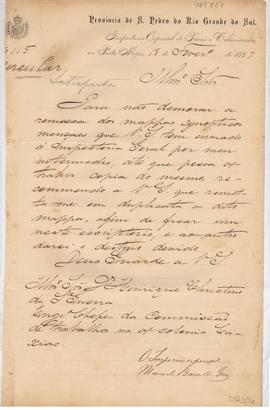 Provincia de S. Pedro do Rio Grande do Sul.
Inspectoria Especial de Terras e Colonisação
em Porto Alegre, 18 de Fever.º de 1887
N 115
Circular
Satisfeita
Illmº Snr
Para não demorar a
remessa dos mappas synopticos
mensaes que V.S. tem enviado
á Inspectoria Geral por meu
intermedio, até que possa ex-
trahir copia do mesmo, re-
commendo a V.S. que remet-
ta-me em duplicata o dito
mappa, afim de ficar um
neste escriptorio, e ao outro
darei o destino devido.
Deus Guarde a V.S.
Illmº Snr. Dr. Henrique Christino
da Silveira
Engrº Chefe da Commissão
de trabalhos na ex-colonia Ca-
xias.
O Inspector especial
Manoel Barreto